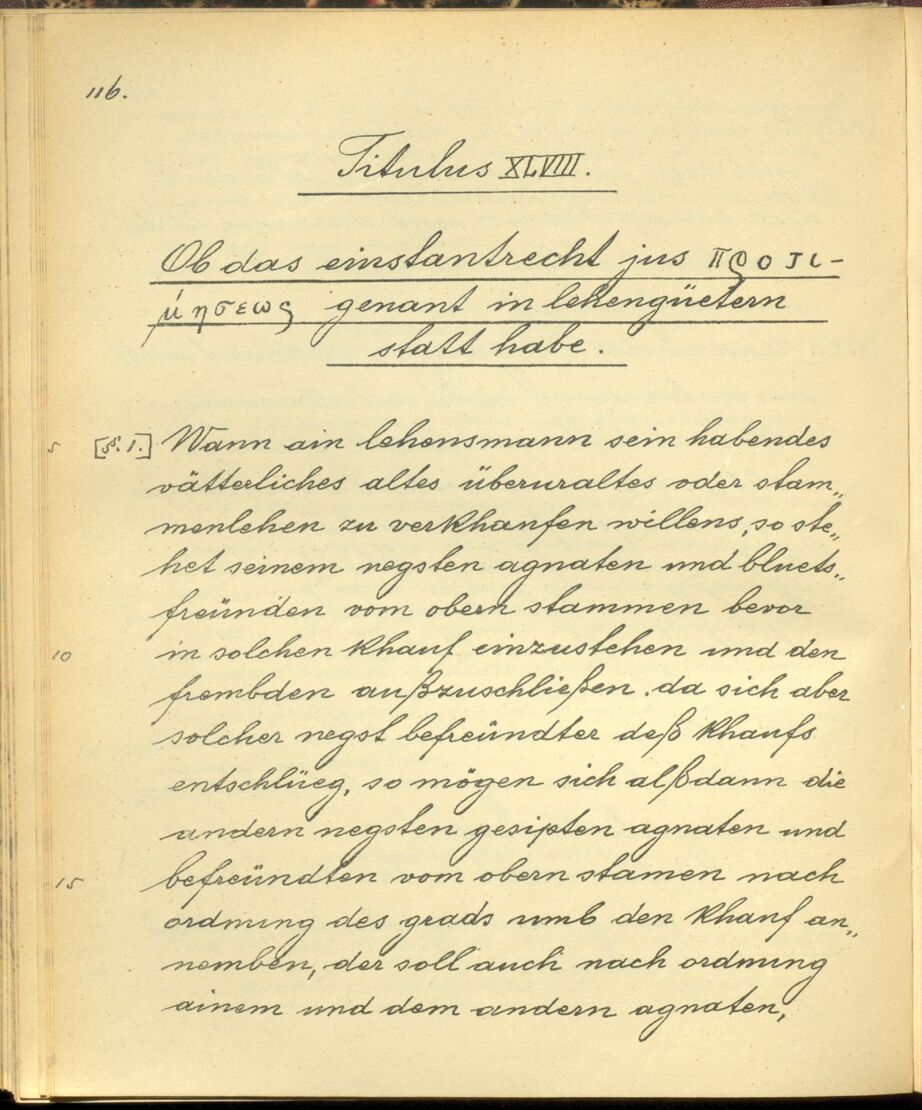 116.
Titulus XLVIII.
Ob das einstantrecht jus προτι-
μήσεως genant in lehengüetern
statt habe.
5 [§.1.] Wann ain lehensmann sein habendes
vätterliches altes überuraltes oder stam„
menlehen zu verkhaufen willens, so ste„
het seinem negsten agnaten und bluets„
freünden vom obern stammen bevor
10 in solchen khauf einzustehen und den
frembden außzuschließen. da sich aber
solcher negst befreündter deß khaufs
entschlüeg, so mögen sich alßdann die
andern negsten gesipten agnaten und
15 befreündten vom obern stamen nach
ordnung des grads umb den khauf an„
nemben, der soll auch nach ordnung
ainem und dem andern agnaten,